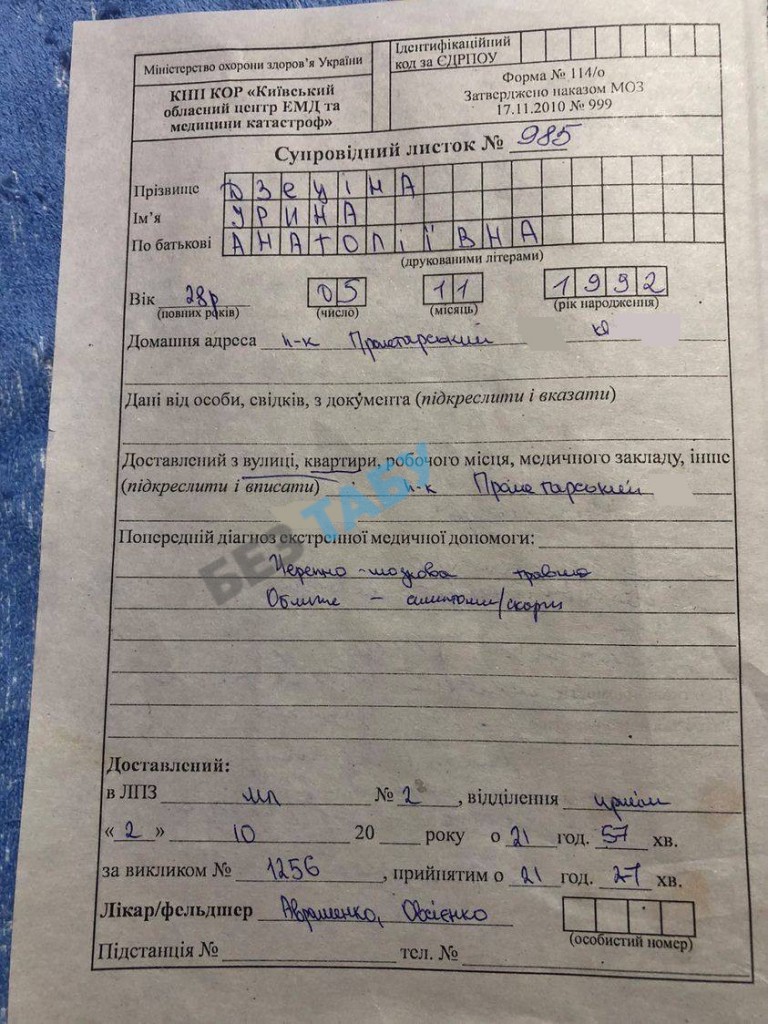 Міністерство охорони здоров'я України
КНП КОР «Київський
обласний центр ЕМД та
медицини катастроф»
Ідентифікаційний
код за ЄДРПОУ
Форма № 114/о
Затверджено наказом МОЗ
17.11.2010 № 999
Супровідний листок № 985
Прізвище ДЗЕЦІНА
Ім'я ІРИНА
По батькові АНАТОЛІЇВНА
(друкованими літерами)
Вік 28р 05 11 1992
(повних років) (число) (місяць) (рік народження)
Домашня адреса п-к Пролетарський
Дані від особи, свідків, з документа (підкреслити і вказати)
Доставлений з вулиці, квартири, робочого місця, медичного закладу, інше
(підкреслити і вписати) п-к Пролетарський
БЕЗ ТАБУ
Попередній діагноз екстренної медичної допомоги:
Черепно-мозкова травма
Доставлений:
в ЛПЗ № 2, відділення
«2» 10 20 року о 21 год. 57 хв.
за викликом № 1256, прийнятим о 21 год. 27 хв.
Лікар/фельдшер Авраменко, Овсієнко
(особистий номер)
Підстанція № тел. №